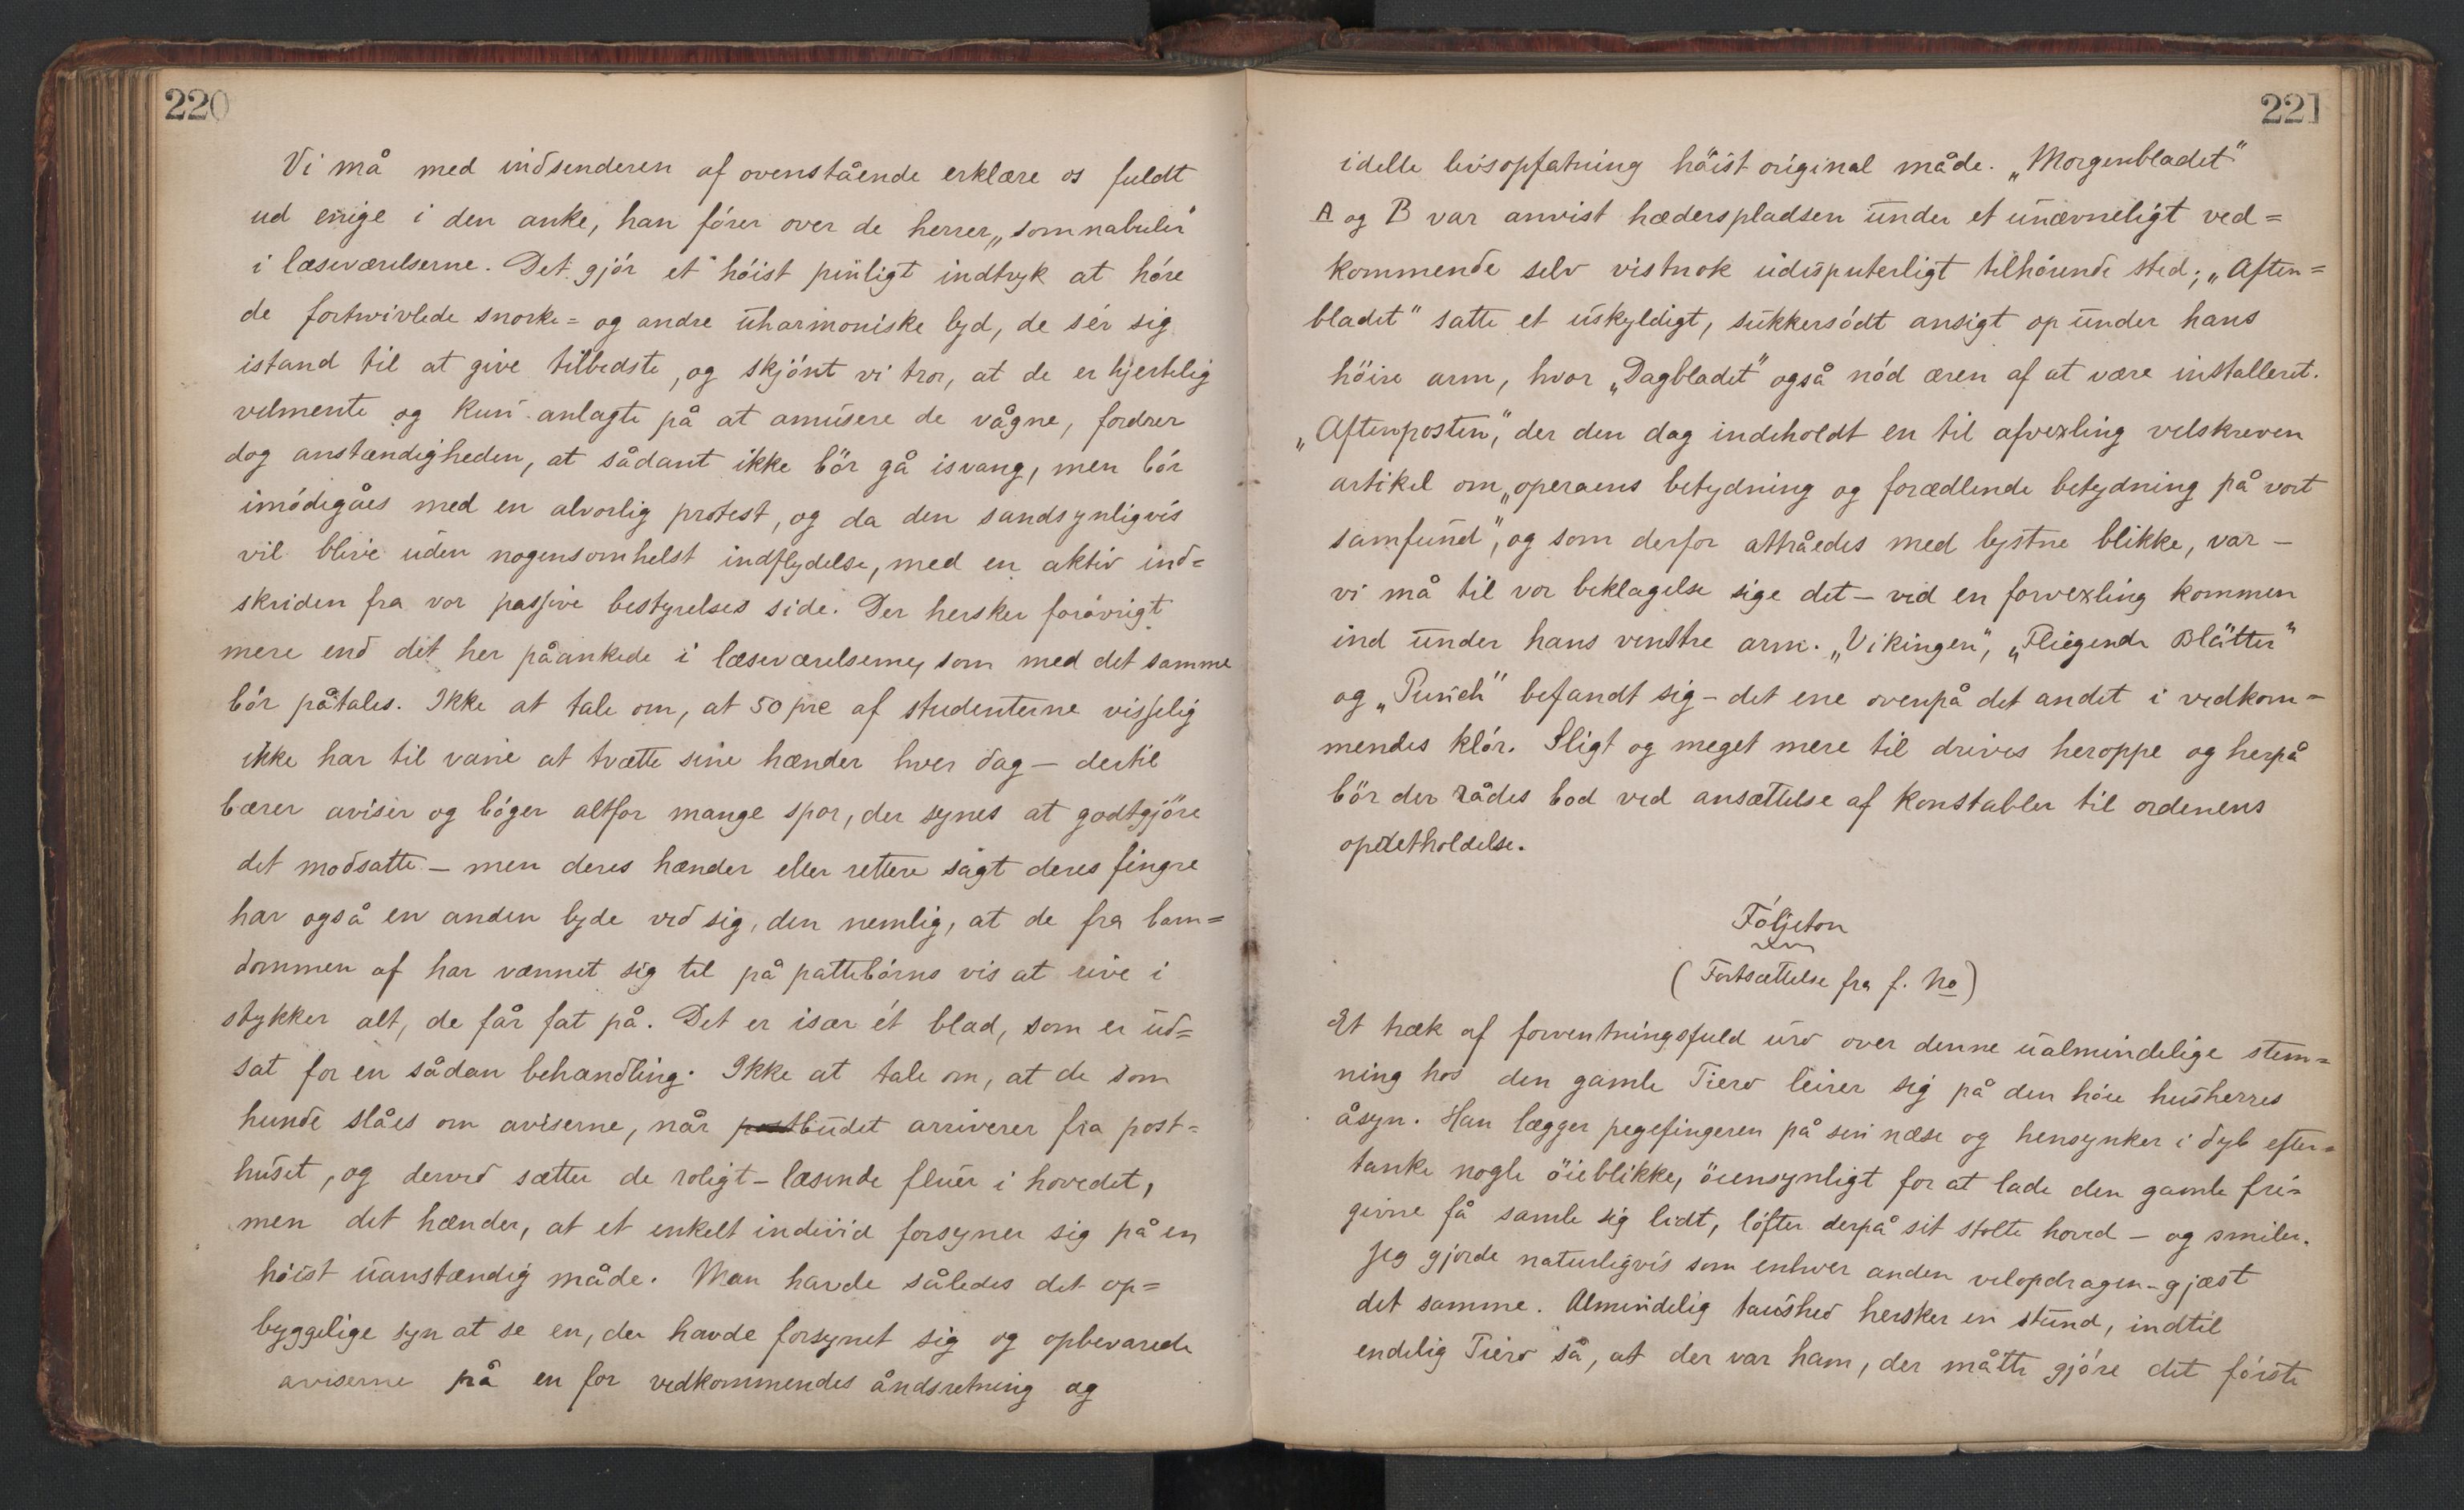 220
Vi må med indsenderen af ovenstående erklære os fuldt
ud enige i den anke, han fører over de herrer „somnabuler"
i læseværelserne. Det gjør et høist pinligt indtryk at høre
de fortvivlede snorke= og andre uharmoniske lyd, de sér sig
istand til at give tilbedste, og skjønt vi tror, at de er hjertelig
velmente og kun anlagte på at amusere de vågne, fordrer
dog anstændigheden, at sådant ikke bör gå isvang, men bör
imødegåes med en alvorlig protest, og da den sandsynligvis
vil blive uden nogensomhelst indflydelse, med en aktiv ind=
skriden fra vor passive bestyrelses side. Der hersker forøvrigt
mere end det her påankede i læseværelserne, som med det samme
bör påtales. Ikke at tale om, at 50 prc af studenterne visselig
ikke har til vane at tvætte sine hænder hver dag — dertil
bærer aviser og bøger altfor mange spor, der synes at godtgjöre
det modsatte — men deres hænder eller rettere sagt deres fingre
har også en anden lyde ved sig, den nemlig, at de fra barn=
dommen af har vænnet sig til på pattebørns vis at rive i
stykker alt, de får fat på. Det er især ét blad, som er ud=
sat for en sådan behandling. Ikke at tale om, at de som
hunde slåes om aviserne, når postbudet arriverer fra post=
huset, og derved sætter de roligt-læsende fluer i hovedet,
men det hænder, at et enkelt individ forsyner sig på en
høist uanstændig måde. Man havde således det op=
byggelige syn at se en, der havde forsynet sig og opbevarede
aviserne på en for vedkommendes åndsretning og
221
idelle livsopfatning höist original måde. „Morgenbladet"
A og B var anvist hæderspladsen under et unævneligt ved=
kommende selv vistnok udisputerligt tilhørende sted; „Aften=
bladet" satte et uskyldigt, sukkersödt ansigt op under hans
höire arm, hvor „Dagbladet" også nød æren af at være installeret.
„Aftenposten", der den dag indeholdt en til afvexling velskreven
artikel om „operaens betydning og forædlende betydning på vort
samfund", og som derfor attråedes med lystne blikke, var —
vi må til vor beklagelse sige det — ved en forvexling kommen
ind under hans venstre arm. „Vikingen", „Fliegende Blätter"
og „Punch" befandt sig — det ene ovenpå det andet i vedkom=
mendes klör. Sligt og meget mere til drives heroppe og herpå
bör der rådes bod ved ansættelse af konstabler til ordenens
opretholdelse.
Føljeton
(Fortsættelse fra f. No)
Et træk af forventningsfuld uro over denne ualmindelige stem=
ning hos den gamle Tiero leirer sig på den höie husherres
åsyn. Han lægger pegefingeren på sin næse og hensynker i dyb efter=
tanke nogle öieblikke, öiensynligt for at lade den gamle fri=
givne få samle sig lidt, löfter derpå sit stolte hoved — og smiler.
Jeg gjorde naturligvis som enhver anden velopdragen gjæst
det samme. Almindelig taushed hersker en stund, indtil
endelig Tiero så, at der var ham, der måtte gjöre det förste